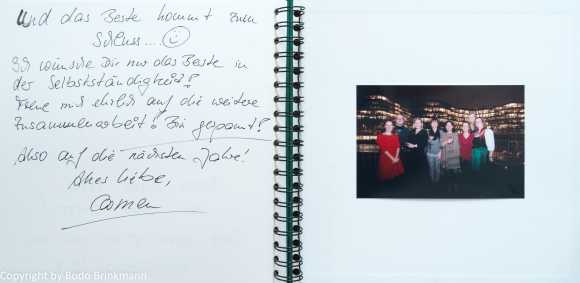 Und das Beste kommt zum
Schluss.... ☺
Ich wünsche Dir nur das Beste in
der Selbstständigkeit!
Freue mich ehrlich auf die weitere
Zusammenarbeit! Bin gespannt!
Also auf die nächsten Jahre!
Alles Liebe,
Carmen
Copyright by Bodo Brinkmann